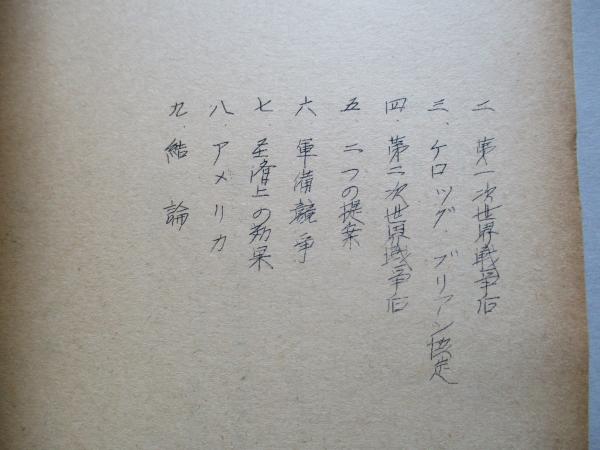 二 第一次世界戦争后
三、ケロッグ・ブリアン協定
四・第二次世界戦争后
五 二つの提案
六 軍備競争
七 の効果
八・アメリカ
九・結論